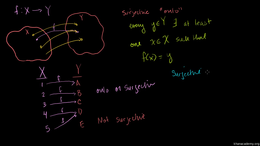 f: X → Y
Surjective "onto"
every y∈Y ∃ at least
one x∈X such that
f(x) = y
X Y
Surjective
1 A
2 B
onto or Surjective
3 C
4 D
5 E
Not Surjective
khanacademy.org